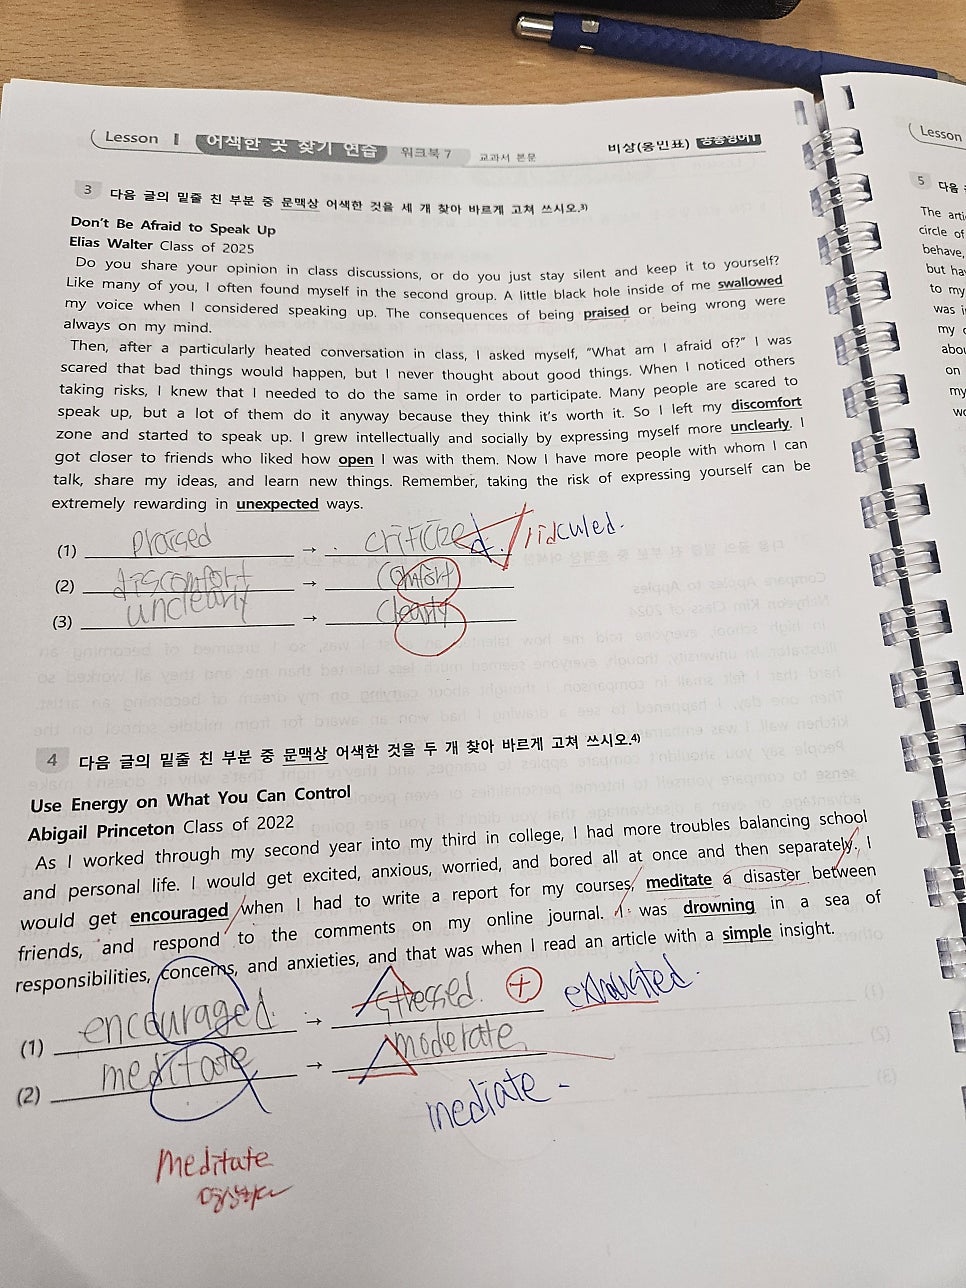 Lesson 1 어색한 곳 찾기 연습 워크북 7 교과서 본문 비상(홍민표) 공통영어1
3 다음 글의 밑줄 친 부분 중 문맥상 어색한 것을 세 개 찾아 바르게 고쳐 쓰시오.3)
Don't Be Afraid to Speak Up
Elias Walter Class of 2025
Do you share your opinion in class discussions, or do you just stay silent and keep it to yourself?
Like many of you, I often found myself in the second group. A little black hole inside of me swallowed
my voice when I considered speaking up. The consequences of being praised or being wrong were
always on my mind.
Then, after a particularly heated conversation in class, I asked myself, "What am I afraid of?" I was
scared that bad things would happen, but I never thought about good things. When I noticed others
taking risks, I knew that I needed to do the same in order to participate. Many people are scared to
speak up, but a lot of them do it anyway because they think it's worth it. So I left my discomfort
zone and started to speak up. I grew intellectually and socially by expressing myself more unclearly. I
got closer to friends who liked how open I was with them. Now I have more people with whom I can
talk, share my ideas, and learn new things. Remember, taking the risk of expressing yourself can be
extremely rewarding in unexpected ways.
(1) praised → criticized. ridiculed.
(2) discomfort → comfort
(3) unclearly → clearly
4 다음 글의 밑줄 친 부분 중 문맥상 어색한 것을 두 개 찾아 바르게 고쳐 쓰시오.4)
Use Energy on What You Can Control
Abigail Princeton Class of 2022
As I worked through my second year into my third in college, I had more troubles balancing school
and personal life. I would get excited, anxious, worried, and bored all at once and then separately. I
would get encouraged when I had to write a report for my courses, meditate a disaster between
friends, and respond to the comments on my online journal. I was drowning in a sea of
responsibilities, concerns, and anxieties, and that was when I read an article with a simple insight.
(1) encouraged. → stressed. + exhausted.
(2) meditate → moderate.
mediate -
meditate
명상하다
Lesson
5 다음
The arti
circle of
behave,
but ha
to my
was i
my
abou
on
my
wo